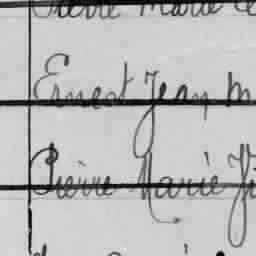 Pierre Marie
Ernest Jean M
Pierre Marie